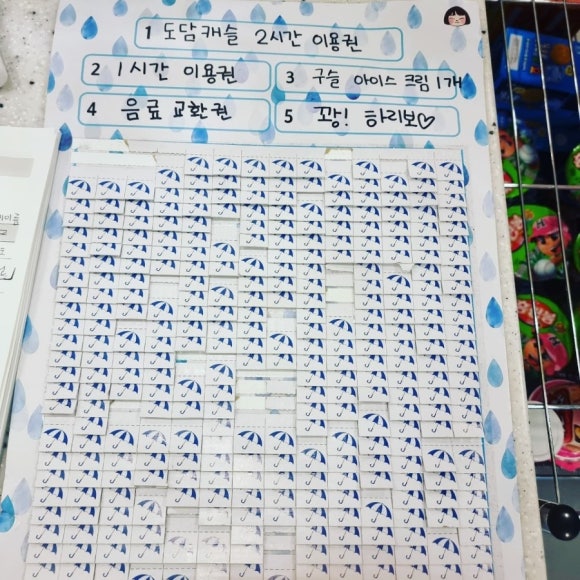 1 도담캐슬 2시간 이용권
2 1시간 이용권
3 구슬 아이스크림 1개
4 음료 교환권
5 꽝! 하리보♡